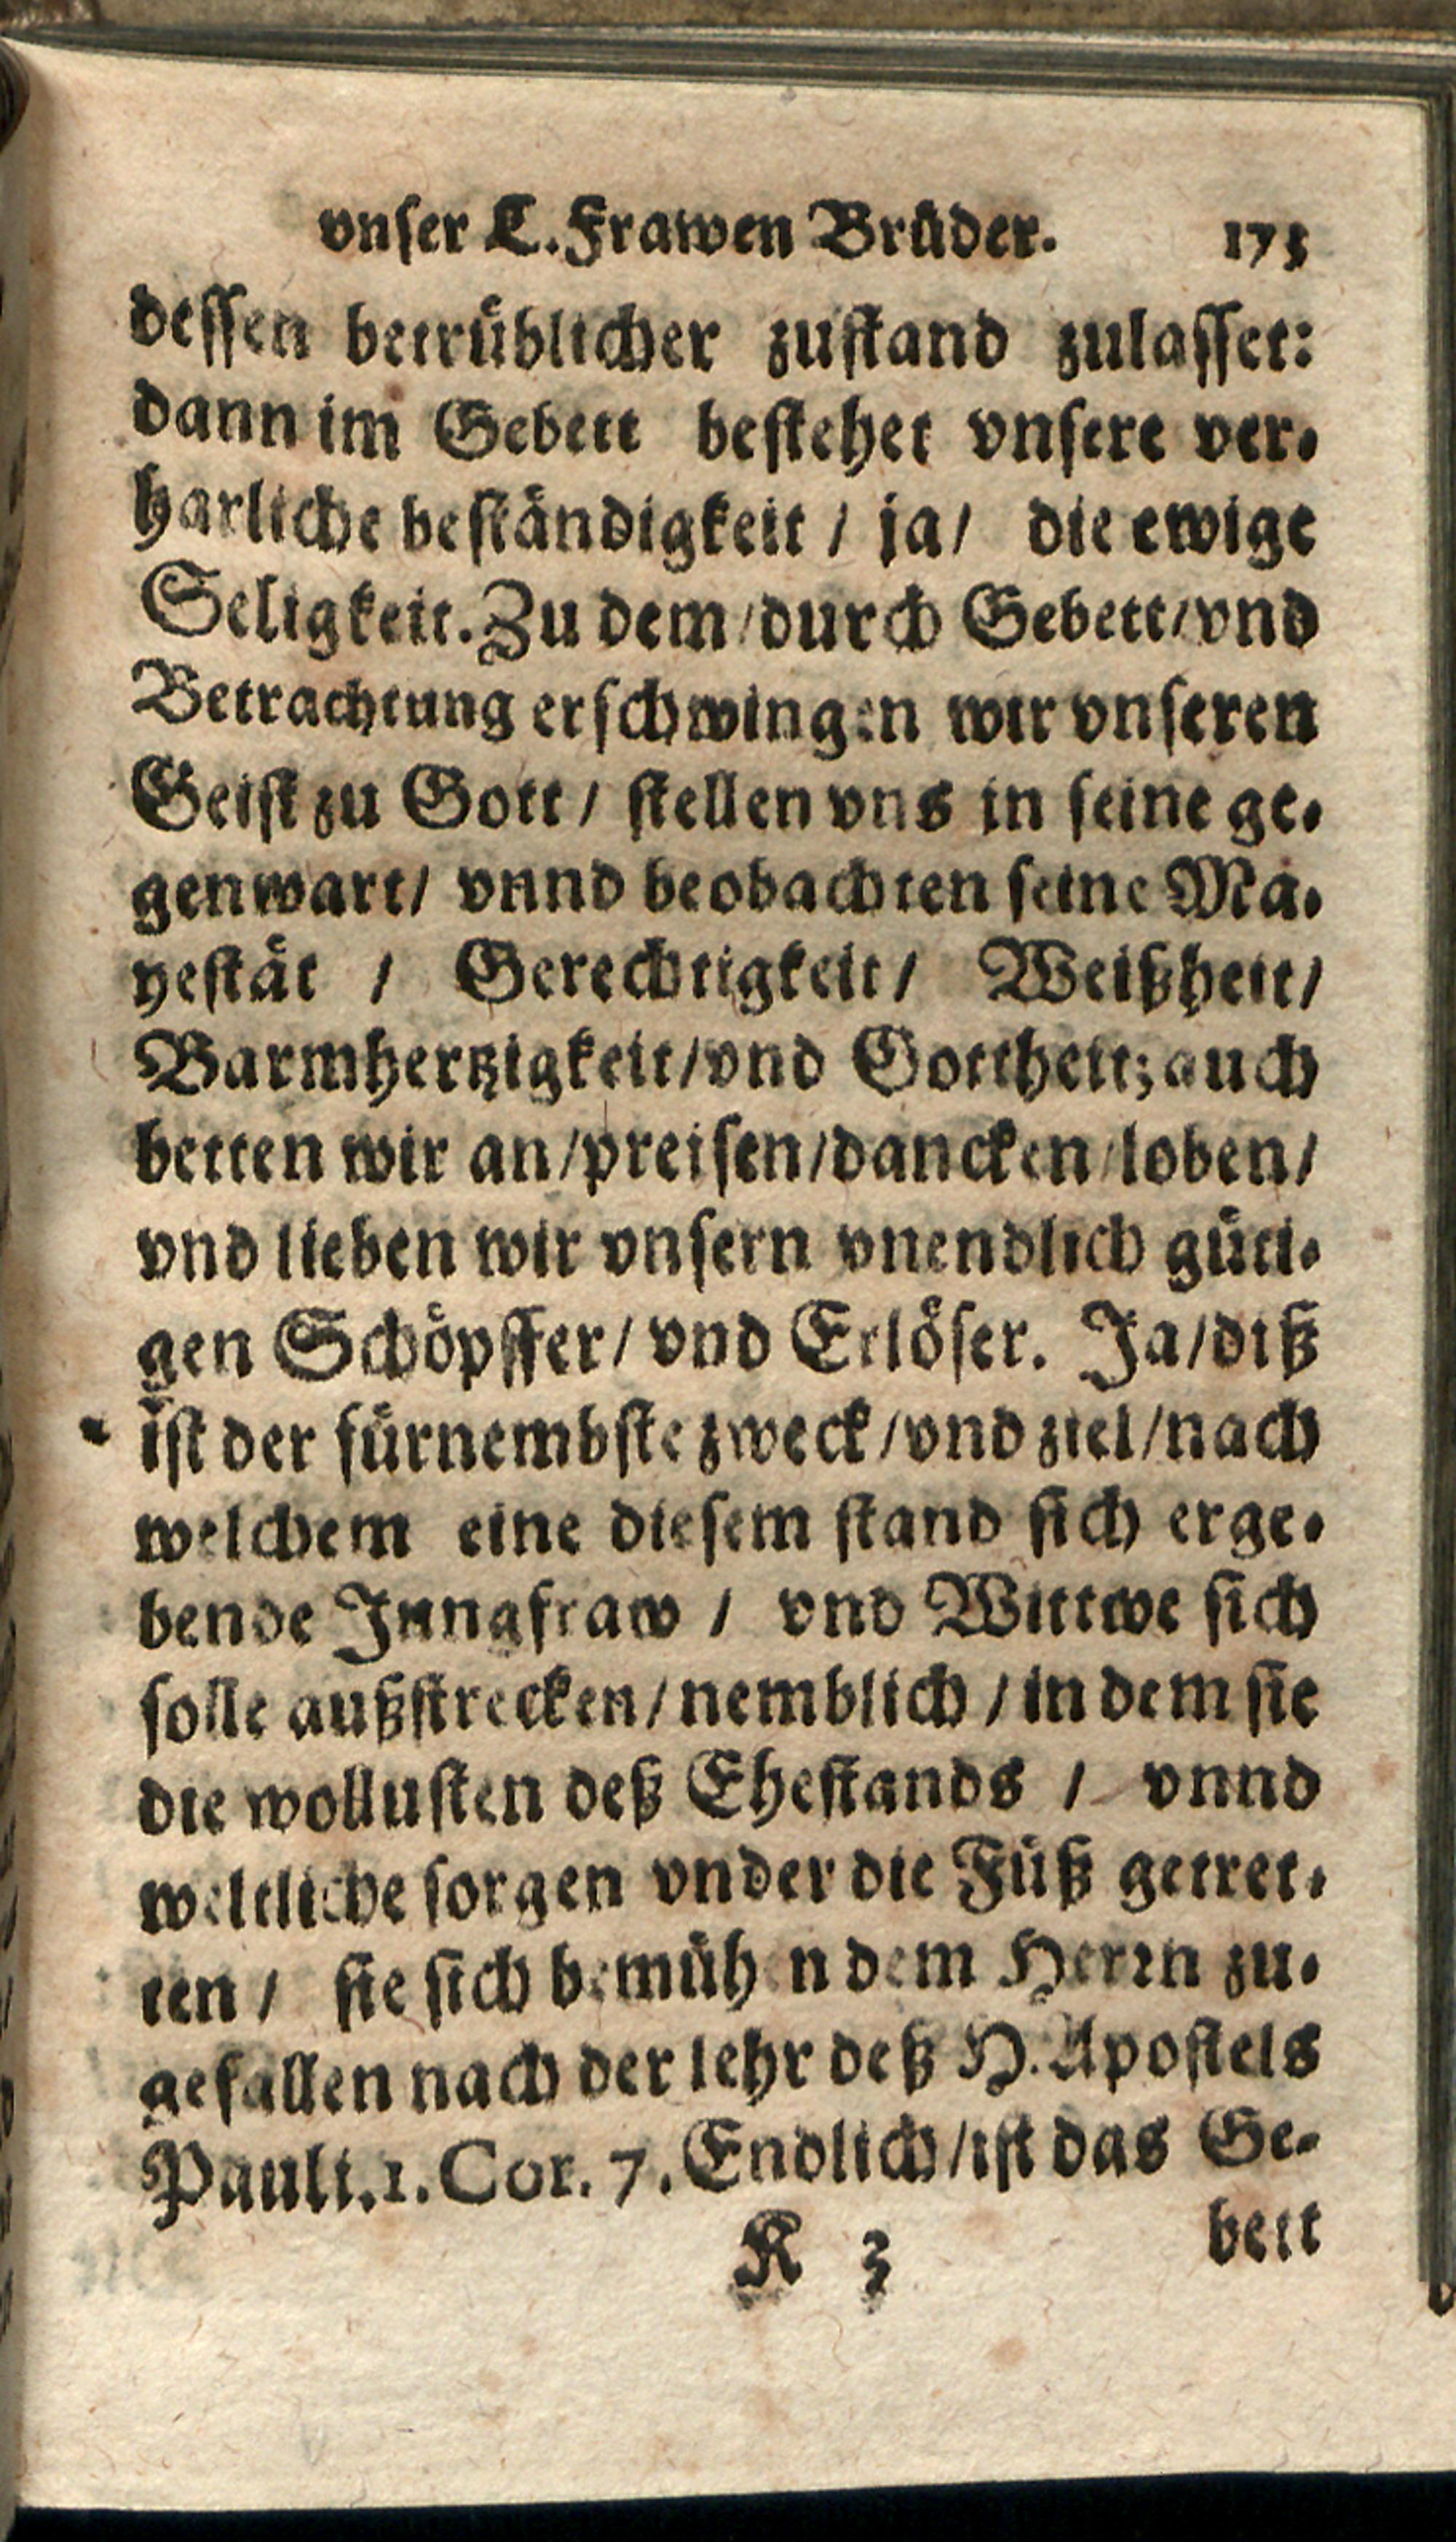 vnser L. Frawen Brüder. 175
dessen betrüblicher zustand zulasset:
dann im Gebett bestehet vnsere ver-
harliche beständigkeit / ja / die ewige
Seligkeit. Zu dem / durch Gebett / vnd
Betrachtung erschwingen wir vnseren
Geist zu Gott / stellen vns in seine ge-
genwart / vnnd beobachten seine Ma-
yestät / Gerechtigkeit / Weißheit /
Barmhertzigkeit / vnd Gottheit; auch
betten wir an / preisen / dancken / loben /
vnd lieben wir vnsern vnendlich güti-
gen Schöpffer / vnd Erlöser. Ja / diß
ist der fürnembste zweck / vnd ziel / nach
welchem eine diesem stand sich erge-
bende Jnngfraw / vnd Wittwe sich
solle außstrecken / nemblich / in dem sie
die wollusten deß Ehestands / vnnd
weltliche sorgen vnder die Füß getret-
ten / sie sich bemühen dem Herrn zu-
gefallen nach der lehr deß H. Apostels
Pauli. 1. Cor. 7. Endlich / ist das Ge-
K 3 bett